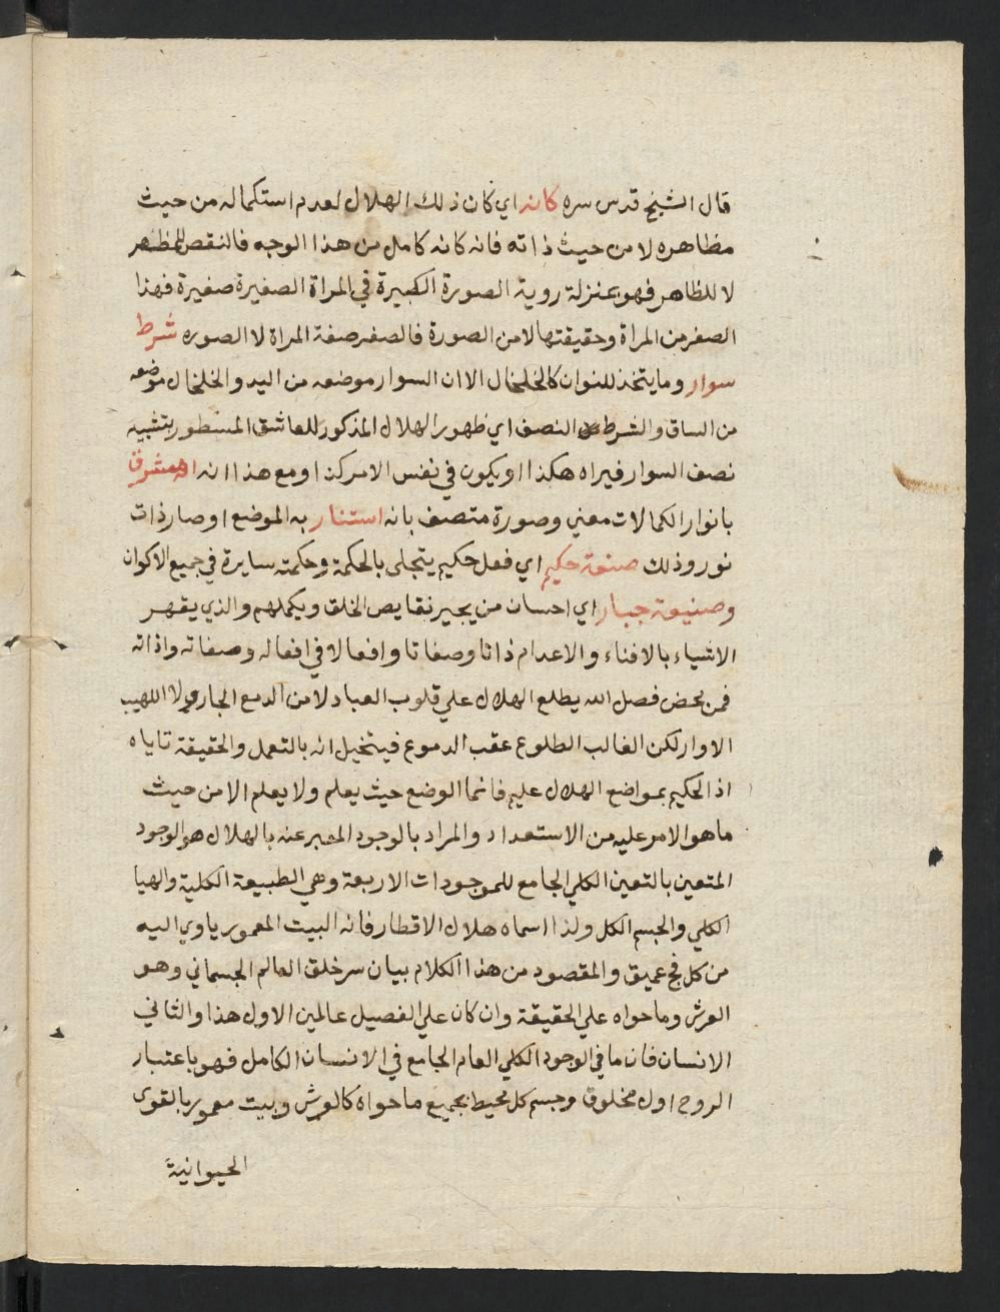 قال الشيخ قدس سره كانه اي كان ذلك الهلال لعدم استكماله من حيث
مظاهره لا من حيث ذاته فانه كانه كامل من هذا الوجه فالنقص للمظهر
لا للظاهر فهو بمنزلة روية الصورة الكبيرة في المراة الصغيرة صغيرة فهذا
الصغر من المراة وحقيقتها لا من الصورة فالصغر صفة المراة لا الصوره شرط
سوار وما يتخذ للنوان كالخلخال الا ان السوار موضعه من اليد والخلخال موضعه
من الساق والشرط النصف اي ظهور الهلال المذكور للعاشق المسطور بتشبيه
نصف السوار فيراه هكذا او يكون في نفس الامر كذا ومع هذا انه مشرق
بانوار الكمالات معني وصورة متصف بانه استنار به الموضع او صار ذات
نور وذلك صنعة حكيم اي فعل حكيم يتجلى بالحكمة وحكمته سايرة في جميع الاكوان
وصنيعة جبار اي احسان من يجبر نقايص الخلق ويكملهم والذي يقهر
الاشياء بالافناء والاعدام ذاتا وصفاتا وافعالا في افعاله وصفاته وذاته
فمن محض فضل الله يطلع الهلال علي قلوب العباد لا من الدمع الجاري ولا اللهيب
الاوار لكن الغالب الطلوع عقب الدموع فيتخيل انه بالتعمل والحقيقة تاباه
اذ الحكيم بمواضع الهلال عليم فانما الوضع حيث يعلم ولا يعلم الا من حيث
ما هو الامر عليه من الاستعداد والمراد بالوجود المعبر عنه بالهلال هو الوجود
المتعين بالتعين الكلي الجامع للموجودات الاربعة وهي الطبيعة الكلية والهبا
الكلي والجسم الكل ولذا اسماه هلال الاقطار فانه البيت المعمور ياوي اليه
من كل فج عميق والمقصود من هذا الكلام بيان سر خلق العالم الجسماني وهو
العرش وما حواه علي الحقيقة وان كان علي الفصيل عالمين الاول هذا والثاني
الانسان فان ما في الوجود الكلي العام الجامع في الانسان الكامل فهو باعتبار
الروح اول مخلوق وجسم كل محيط بجميع ما حواه كالعرش وبيت معمور بالقوى
الحيوانية